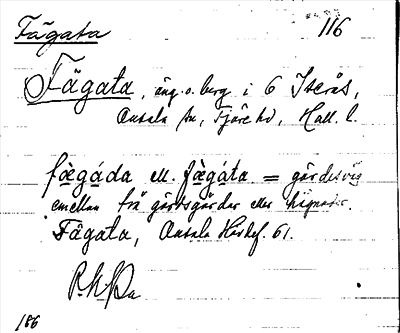 Fägata 116
Fägata, äng o. berg i 6 Iserås,
Onsala sn, Fjäre hd, Hall. l.
fægáda ell. fægáta = gärdesväg
emellan två gärdsgårdar eller hägnader.
Fägata, Onsala Hskpf. 61.
186